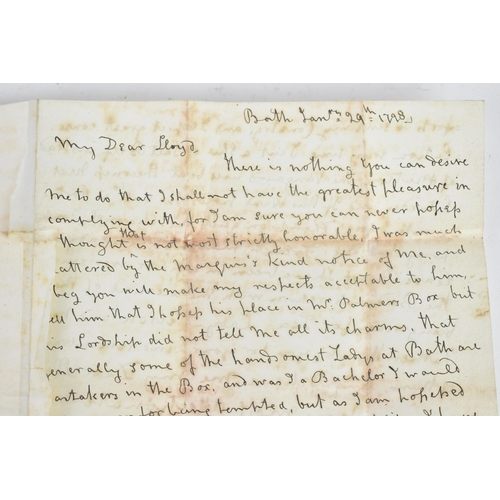 Bath Jan.ry 29.th 1798
My Dear Lloyd
There is nothing you can desire
me to do that I shall not have the greatest pleasure in
complying with, for I am sure you can never posess
that
thought is not most strictly honorable. I was much
attered by the Marquis's kind notice of Me, and
beg you will make my respects acceptable to him,
ell him that I posess his place in Mr. Palmers Box, but
is Lordship did not tell me all its charms. That
enerally some of the handsomest Ladys at Bath are
artakers in the Box, and was I a Bachelor I would
for being tempted, but as I am